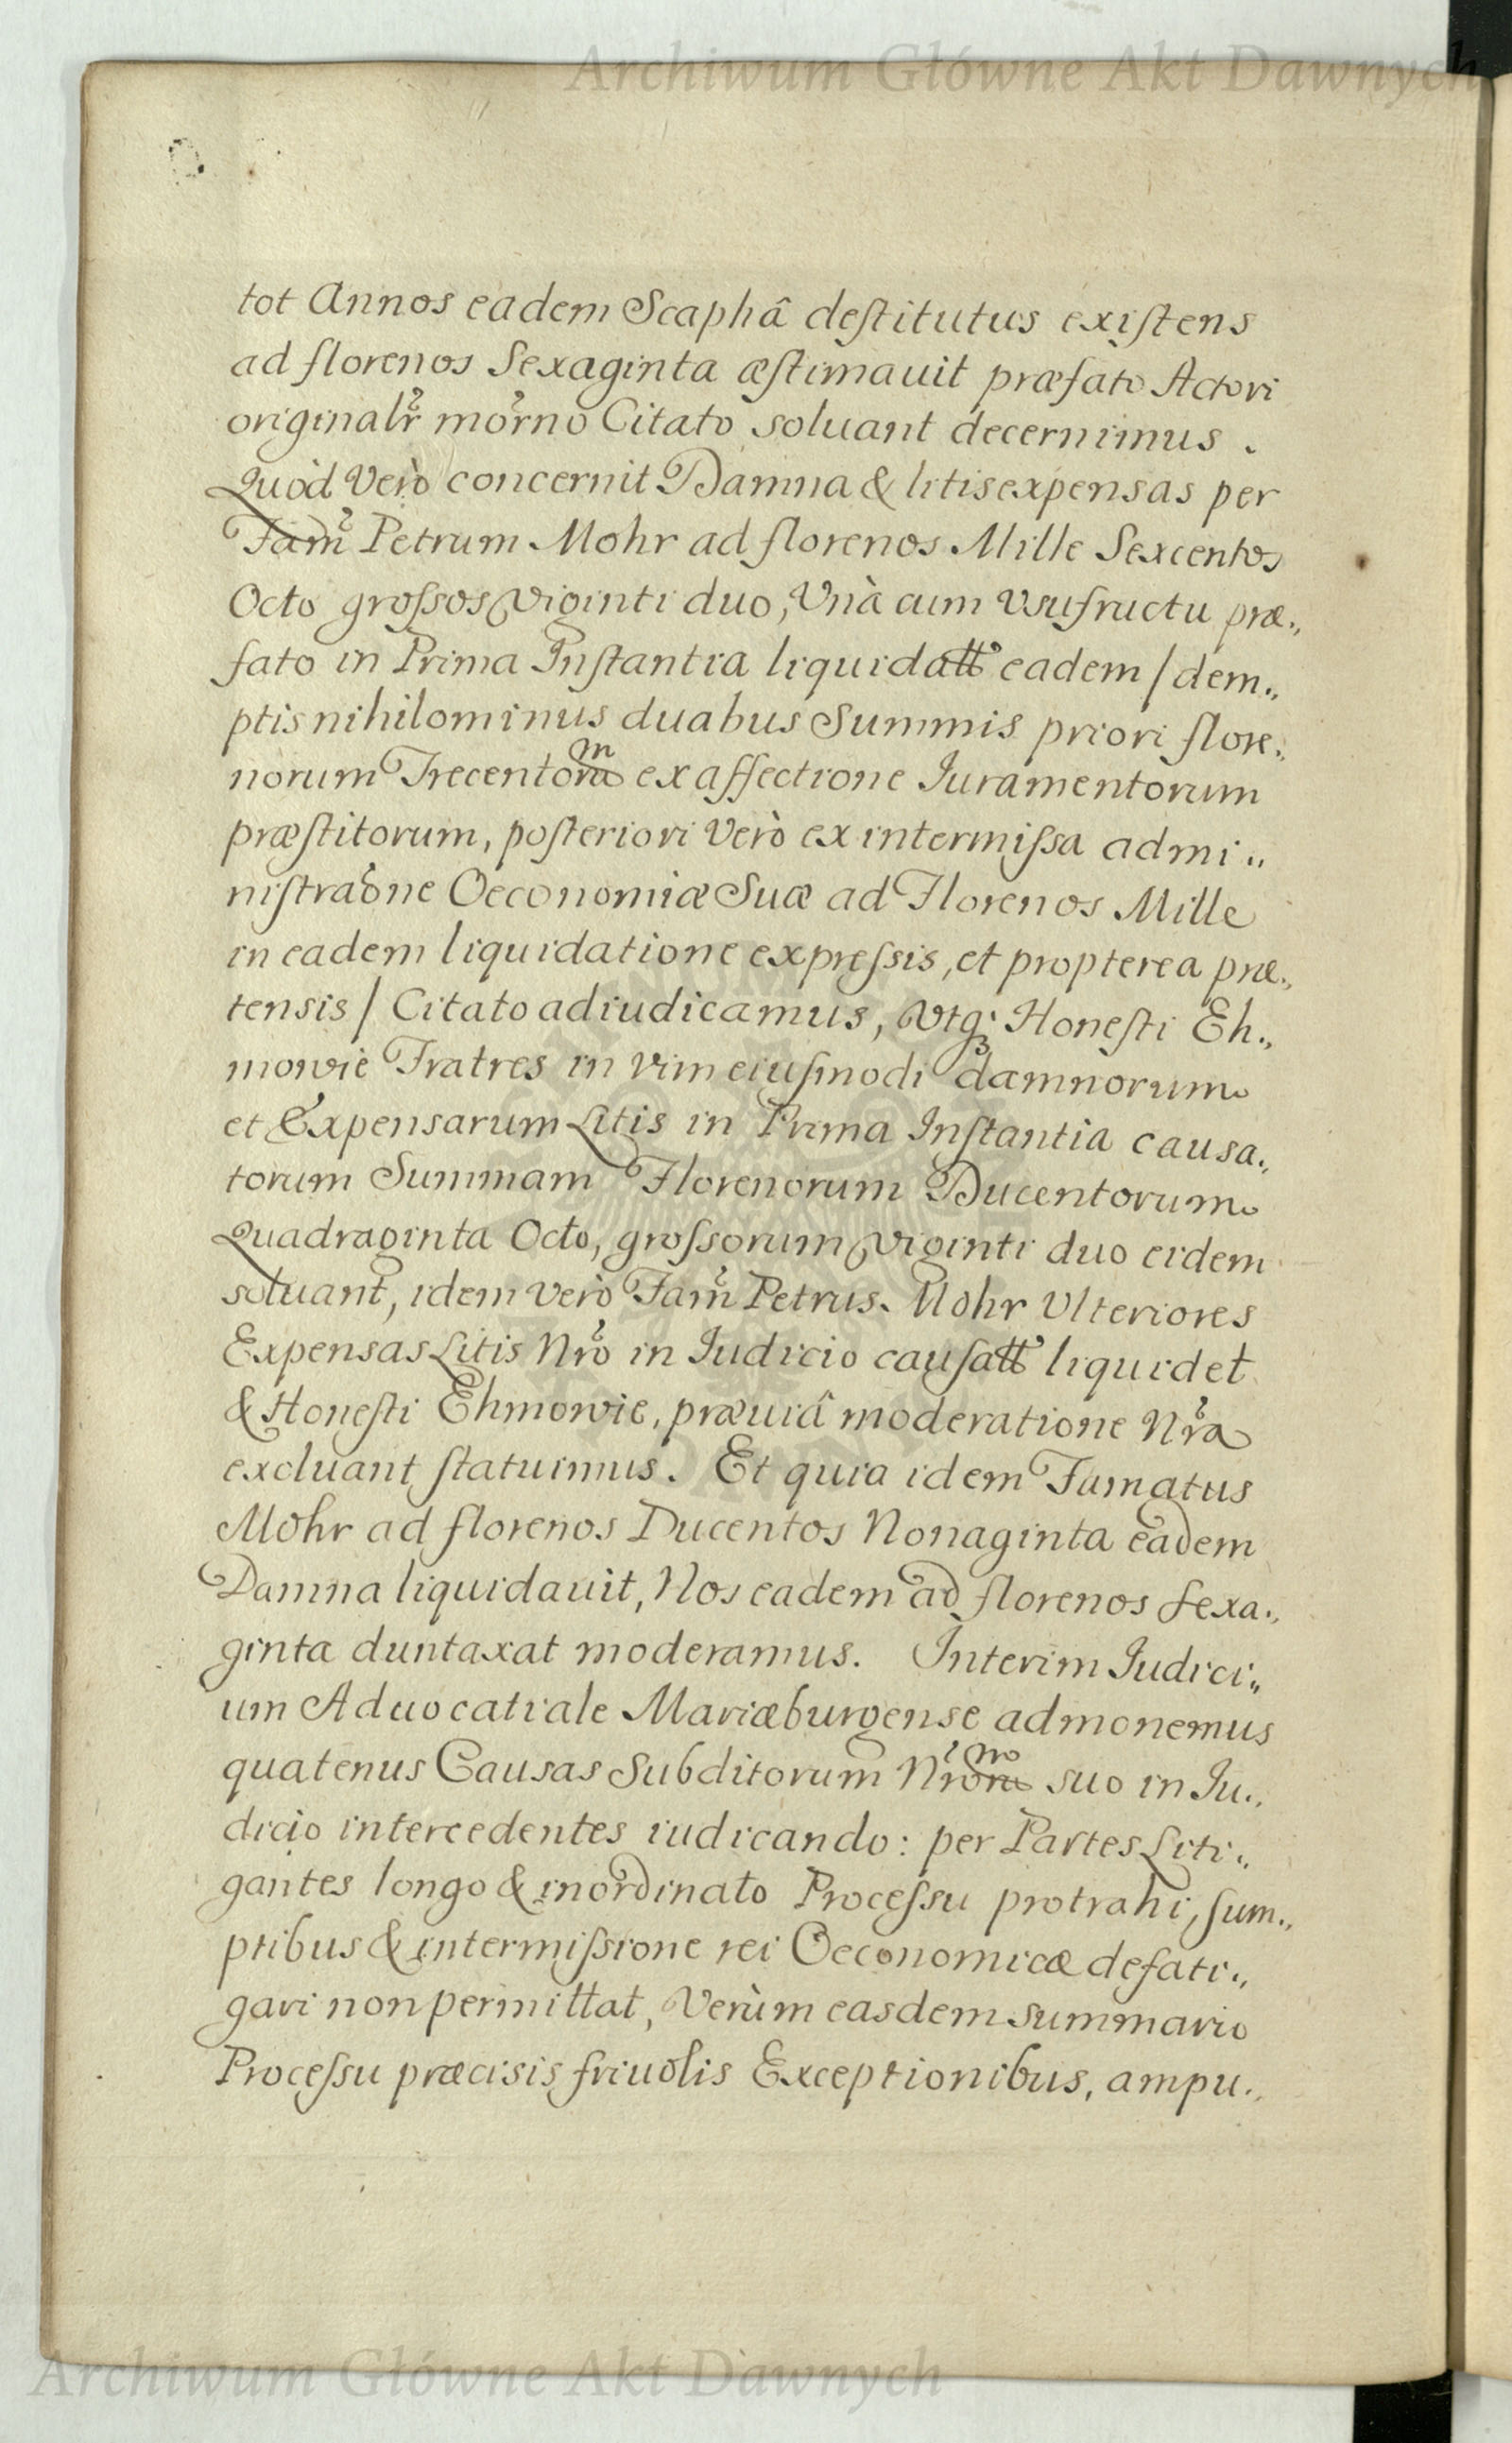 Archiwum Główne Akt Dawnych
tot Annos eadem Scaphâ deſtitutus exiſtens
ad florenos Sexaginta æſtimauit præfato Actori
originalr̃ mor̃no Citato soluant decernimus.
Quòd Verò concernit Damna & litis expensas per
Fam̃ Petrum Mohr ad florenos Mille Sexcentos
Octo groſsos viginti duo, Vnà cum Vsufructu præ„
fato in Prima Inſtantia liquidatt eadem / dem„
ptis nihilominus duabus Summis priori flore„
norum Trecentorũ ex affectione Iuramentorum
præſtitorum, poſteriori Verò ex intermiſsa admi„
niſtraõne Oeconomiæ Suæ ad Florenos Mille
in eadem liquidatione expreſsis, et propterea præ„
tensis / Citato adiudicamus, Vtq; Honeſti Eh„
mowie Fratres in vim eiuſmodi damnorum
et Expensarum Litis in Prima Inſtantia causa„
torum Summam Florenorum Ducentorum
Quadraginta Octo, groſsorum viginti duo eidem
soluant, idem verò Fam̃ Petrus Mohr Vlteriores
Expensas Litis Nr̃o in Iudicio cauſatt liquidet
& Honeſti Ehmowie, præuiâ moderatione Nr̃a
exoluant ſtatuimus. Et quia idem Famatus
Mohr ad florenos Ducentos Nonaginta eadem
Damna liquidauit, Nos eadem ad florenos ſexa„
ginta duntaxat moderamus. Interim Iudici„
um Aduocatiale Mariæburgense admonemus
quatenus Causas Subditorum Nr̃orũ suo in Iu„
dicio intercedentes iudicando: per Partes Liti„
gantes longo & inordinato Proceſsu protrahi, ſum„
ptibus & intermiſsione rei Oeconomicæ defati„
gari non permittat, Verùm easdem summario
Proceſsu præcisis friuolis Exceptionibus, ampu„
Archiwum Główne Akt Dawnych